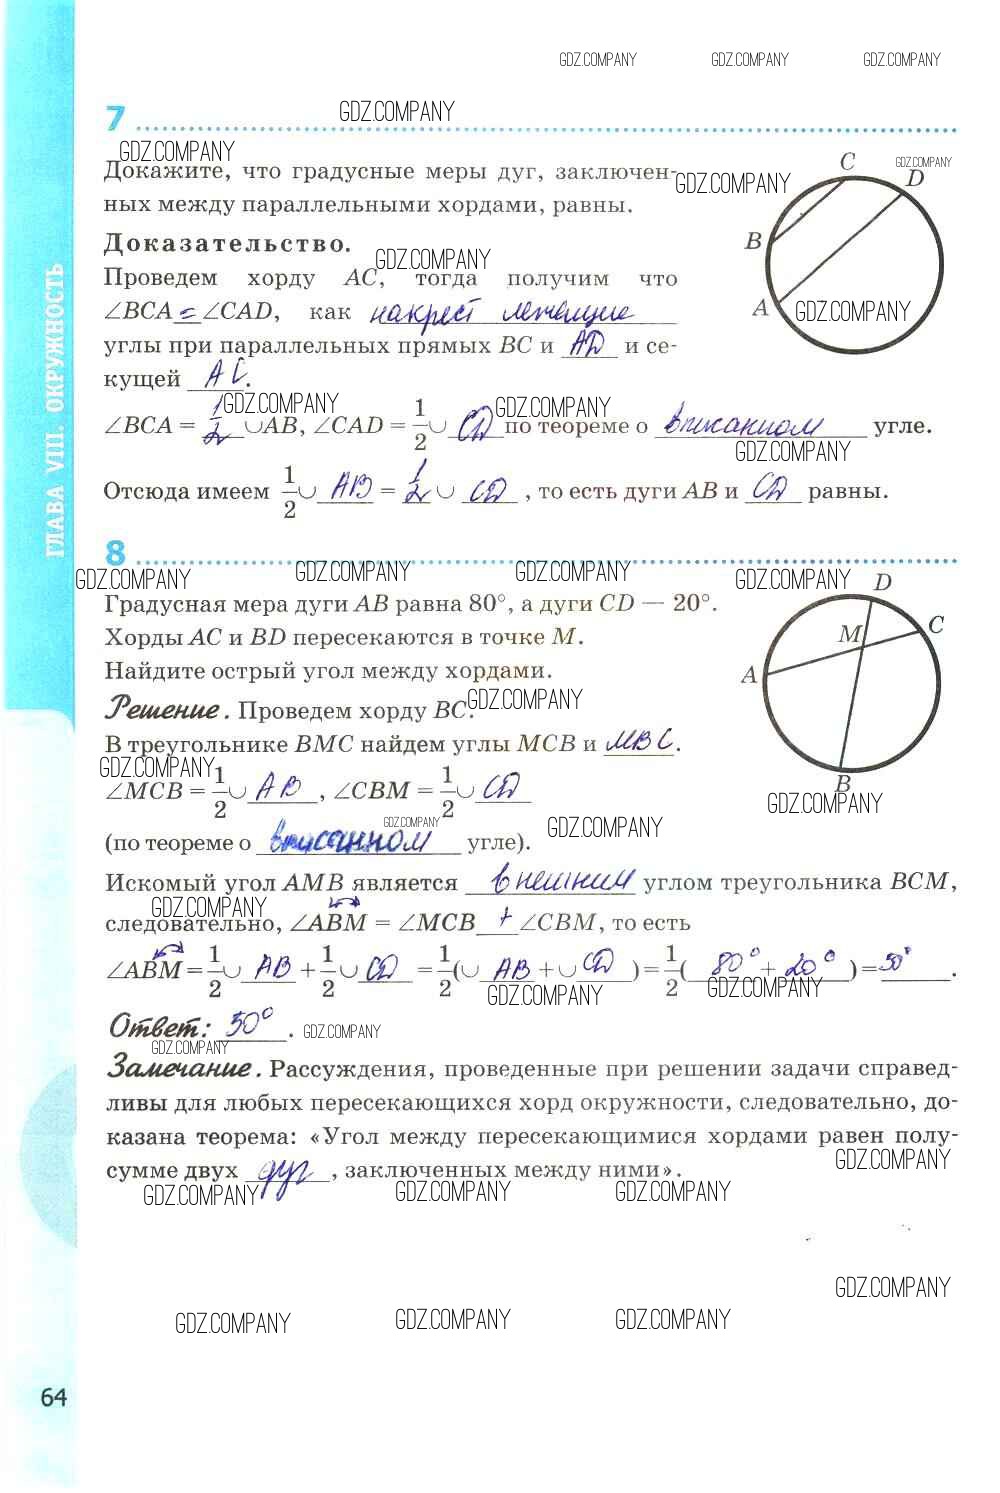 GDZ.COMPANY GDZ.COMPANY GDZ.COMPANY
7
GDZ.COMPANY
GDZ.COMPANY
Докажите, что градусные меры дуг, заключен-
GDZ.COMPANY
ных между параллельными хордами, равны.
C
D
GDZ.COMPANY
B
A
GDZ.COMPANY
Доказательство.
GDZ.COMPANY
Проведем хорду AC, тогда получим что
∠BCA = ∠CAD, как накрест лежащие
углы при параллельных прямых BC и AD и се-
кущей AC.
GDZ.COMPANY GDZ.COMPANY
∠BCA = 1/2 ∪AB, ∠CAD = 1/2 ∪ CD по теореме о вписанном угле.
GDZ.COMPANY
Отсюда имеем 1/2 ∪ AB = 1/2 ∪ CD, то есть дуги AB и CD равны.
ГЛАВА VIII. ОКРУЖНОСТЬ
8
GDZ.COMPANY GDZ.COMPANY GDZ.COMPANY GDZ.COMPANY
Градусная мера дуги AB равна 80°, а дуги CD — 20°.
Хорды AC и BD пересекаются в точке M.
Найдите острый угол между хордами.
D
C
M
A
B
GDZ.COMPANY
GDZ.COMPANY
Решение. Проведем хорду BC.
В треугольнике BMC найдем углы MCB и MBC.
GDZ.COMPANY
∠MCB = 1/2 ∪ AB, ∠CBM = 1/2 ∪ CD
GDZ.COMPANY GDZ.COMPANY
(по теореме о вписанном угле).
Искомый угол AMB является внешним углом треугольника BCM,
GDZ.COMPANY
следовательно, ∠ABM = ∠MCB + ∠CBM, то есть
∠ABM = 1/2 ∪ AB + 1/2 ∪ CD = 1/2 (∪ AB + ∪ CD) = 1/2 (80° + 20°) = 50°.
GDZ.COMPANY GDZ.COMPANY
Ответ: 50°. GDZ.COMPANY
GDZ.COMPANY
Замечание. Рассуждения, проведенные при решении задачи справед-
ливы для любых пересекающихся хорд окружности, следовательно, до-
казана теорема: «Угол между пересекающимися хордами равен полу-
сумме двух дуг, заключенных между ними».
GDZ.COMPANY
GDZ.COMPANY GDZ.COMPANY GDZ.COMPANY
GDZ.COMPANY
GDZ.COMPANY GDZ.COMPANY GDZ.COMPANY
64